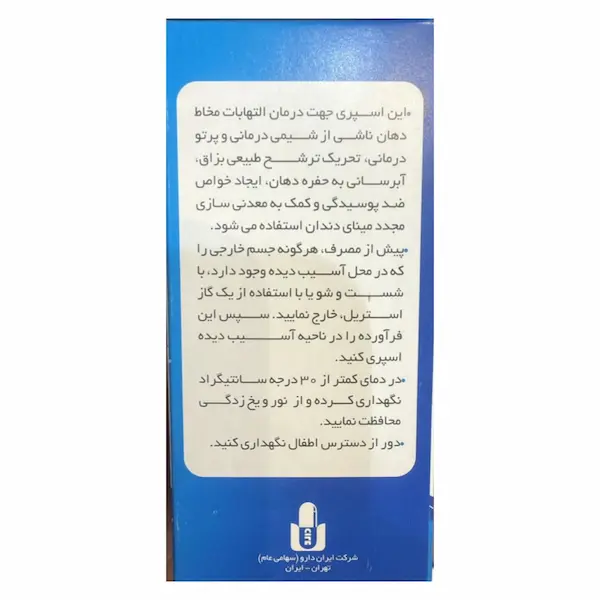 •این اسپری جهت درمان التهابات مخاط
دهان ناشی از شیمی درمانی و پرتو
درمانی، تحریک ترشح طبیعی بزاق،
آبرسانی به حفره دهان، ایجاد خواص
ضد پوسیدگی و کمک به معدنی سازی
مجدد مینای دندان استفاده می شود.
•پیش از مصرف، هرگونه جسم خارجی را
که در محل آسیب دیده وجود دارد، با
شست و شو یا با استفاده از یک گاز
استریل، خارج نمایید. سپس این
فرآورده را در ناحیه آسیب دیده
اسپری کنید.
•در دمای کمتر از ۳۰ درجه سانتیگراد
نگهداری کرده و از نور و یخ زدگی
محافظت نمایید.
•دور از دسترس اطفال نگهداری کنید.
شرکت ایران دارو (سهامی عام)
تهران - ایران